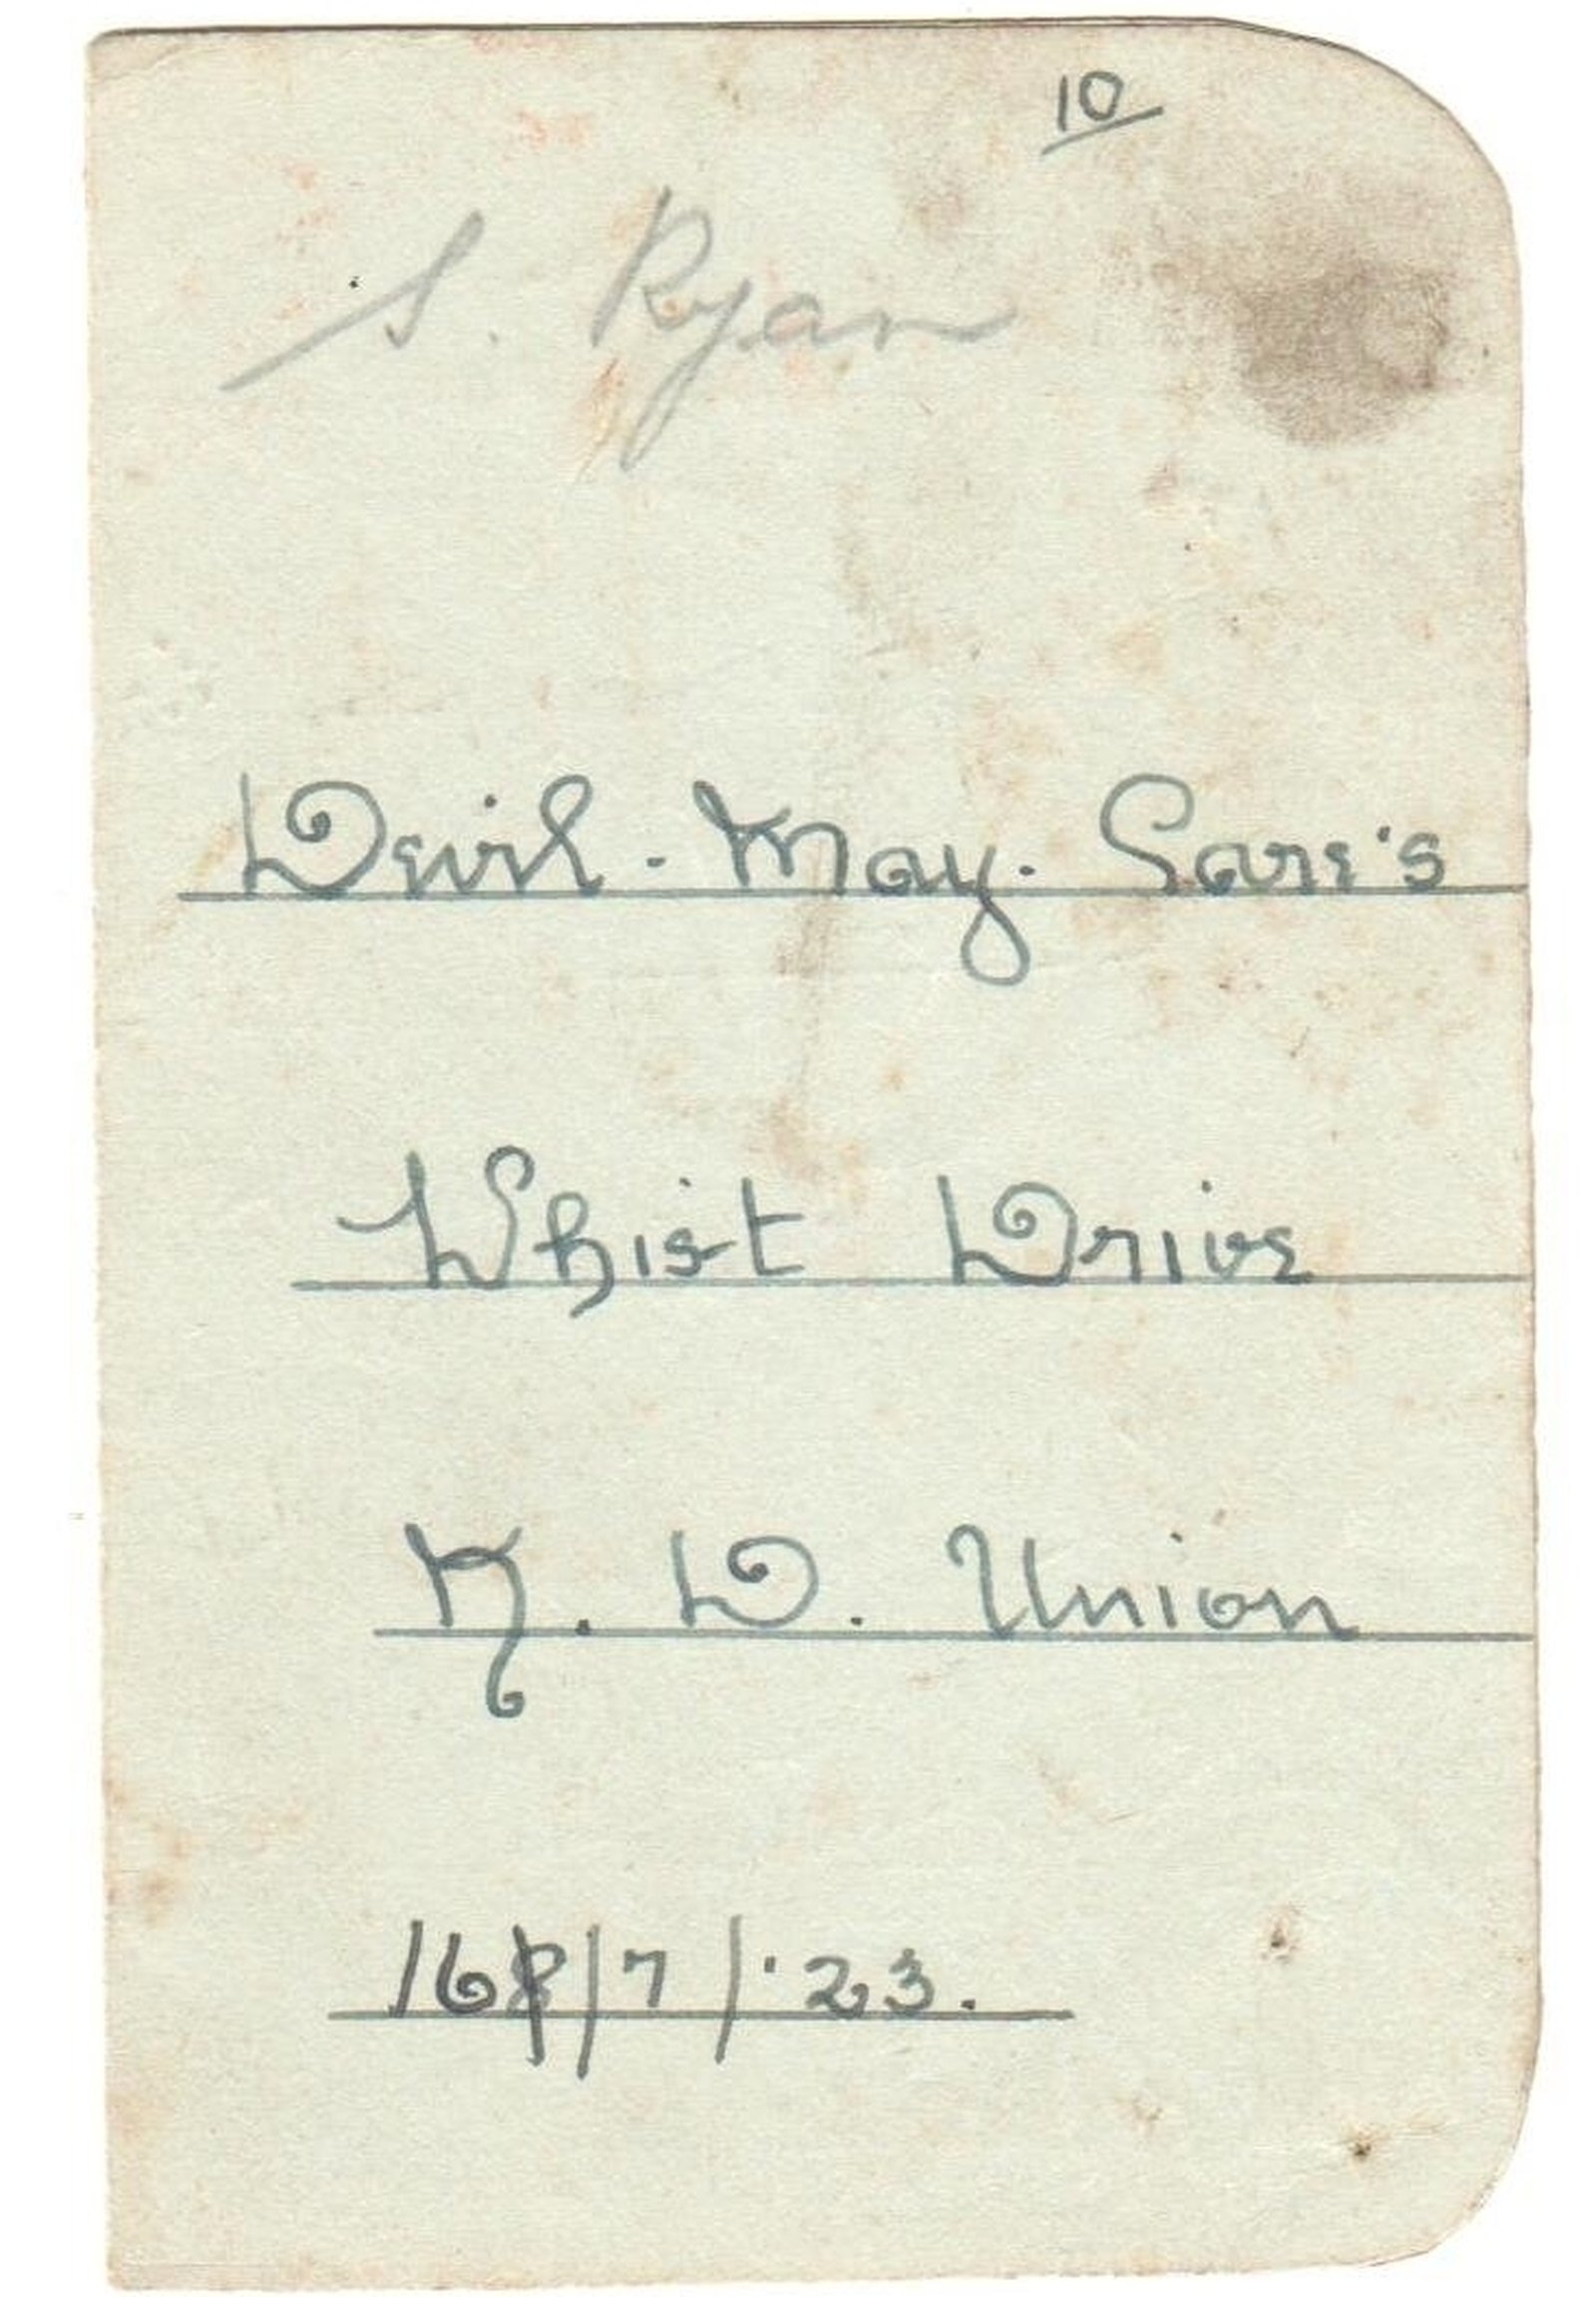 10
S. Ryan
Devil. May. Care's
Whist Drive
N. D. Union
16/7/'23.